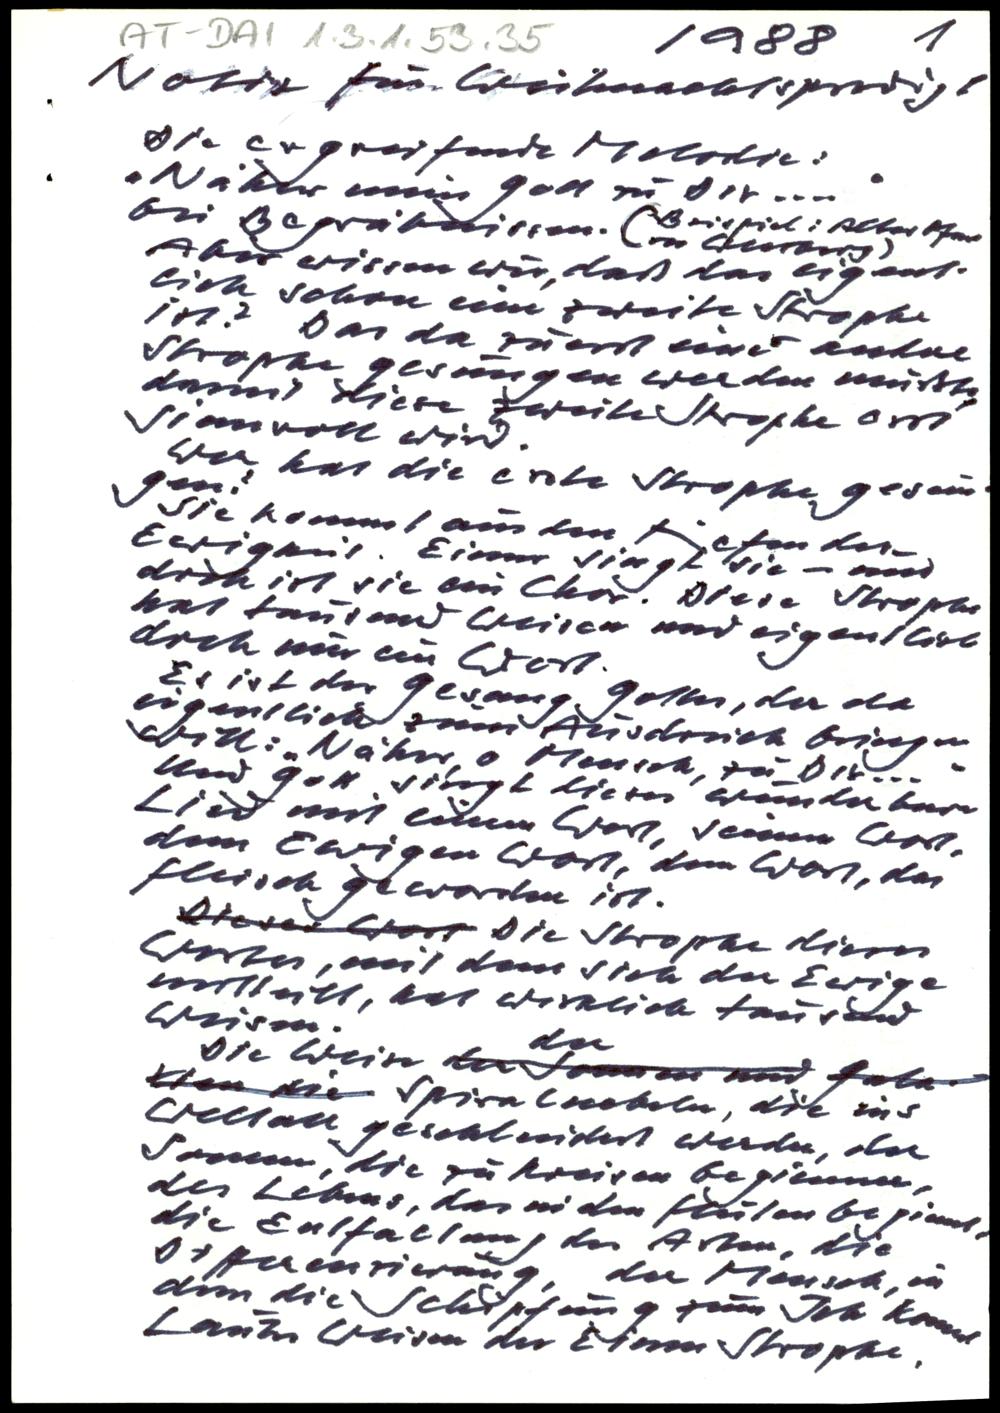 AT-DAI 1.3.1.53.35 1988 1
Notiz für Weihnachtspredigt
Die ergreifende Melodie:
"Näher mein Gott zu Dir ...."
bei Begräbnissen. (Beispiel: Alter Pfarrer
von
Aber wissen wir, daß das eigent-
lich schon eine zweite Strophe
ist? Das da zuerst eine andere
Strophe gesungen werden müßte,
damit diese zweite Strophe erst
sinnvoll wird.
Wer hat die erste Strophe gesun-
gen?
Sie kommt aus den Tiefen der
Ewigkeit. Einer singt sie – und
doch ist sie ein Chor. Diese Strophe
hat tausend Weisen und eigentlich
doch nur ein Wort.
Es ist der Gesang Gottes, der da
eigentlich zum Ausdruck bringen
will: "Näher, o Mensch, zu Dir...."
Und Gott singt dieses wunderbare
Lied mit einem Wort, seinem Wort,
dem Ewigen Wort, dem Wort, das
Fleisch geworden ist.
Dieses Wort Die Strophe dieses
Wortes, mit dem sich der Ewige
mitteilt, hat wirklich tausend
Weisen.
der
Die Weise der Sonnen und Gala-
xien die Spiralnebeln, die ins
Weltall geschleudert werden, der
Sonnen, die zu kreisen beginnen,
des Lebens, das in den Fluten beginnt,
die Entfaltung der Arten, die
Differenzierung, der Mensch, in
dem die Schöpfung zum Ich kommt
Lauter Weisen der Einen Strophe.